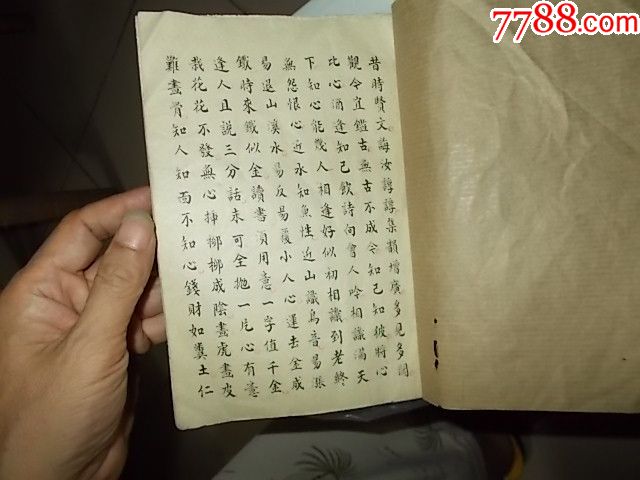 7788.com
昔時賢文誨汝諄諄集韻增廣多見多聞
觀今宜鑑古無古不成今知己知彼將心
比心酒逢知己飲詩向會人吟相識滿天
下知心能幾人相逢好似初相識到老終
無怨恨心近水知魚性近山識鳥音易漲
易退山溪水易反易覆小人心運去金成
鐵時來鐵似金讀書須用意一字值千金
逢人且說三分話未可全拋一片心有意
栽花花不發無心挿柳柳成陰畫虎畫皮
難畫骨知人知面不知心錢財如糞土仁